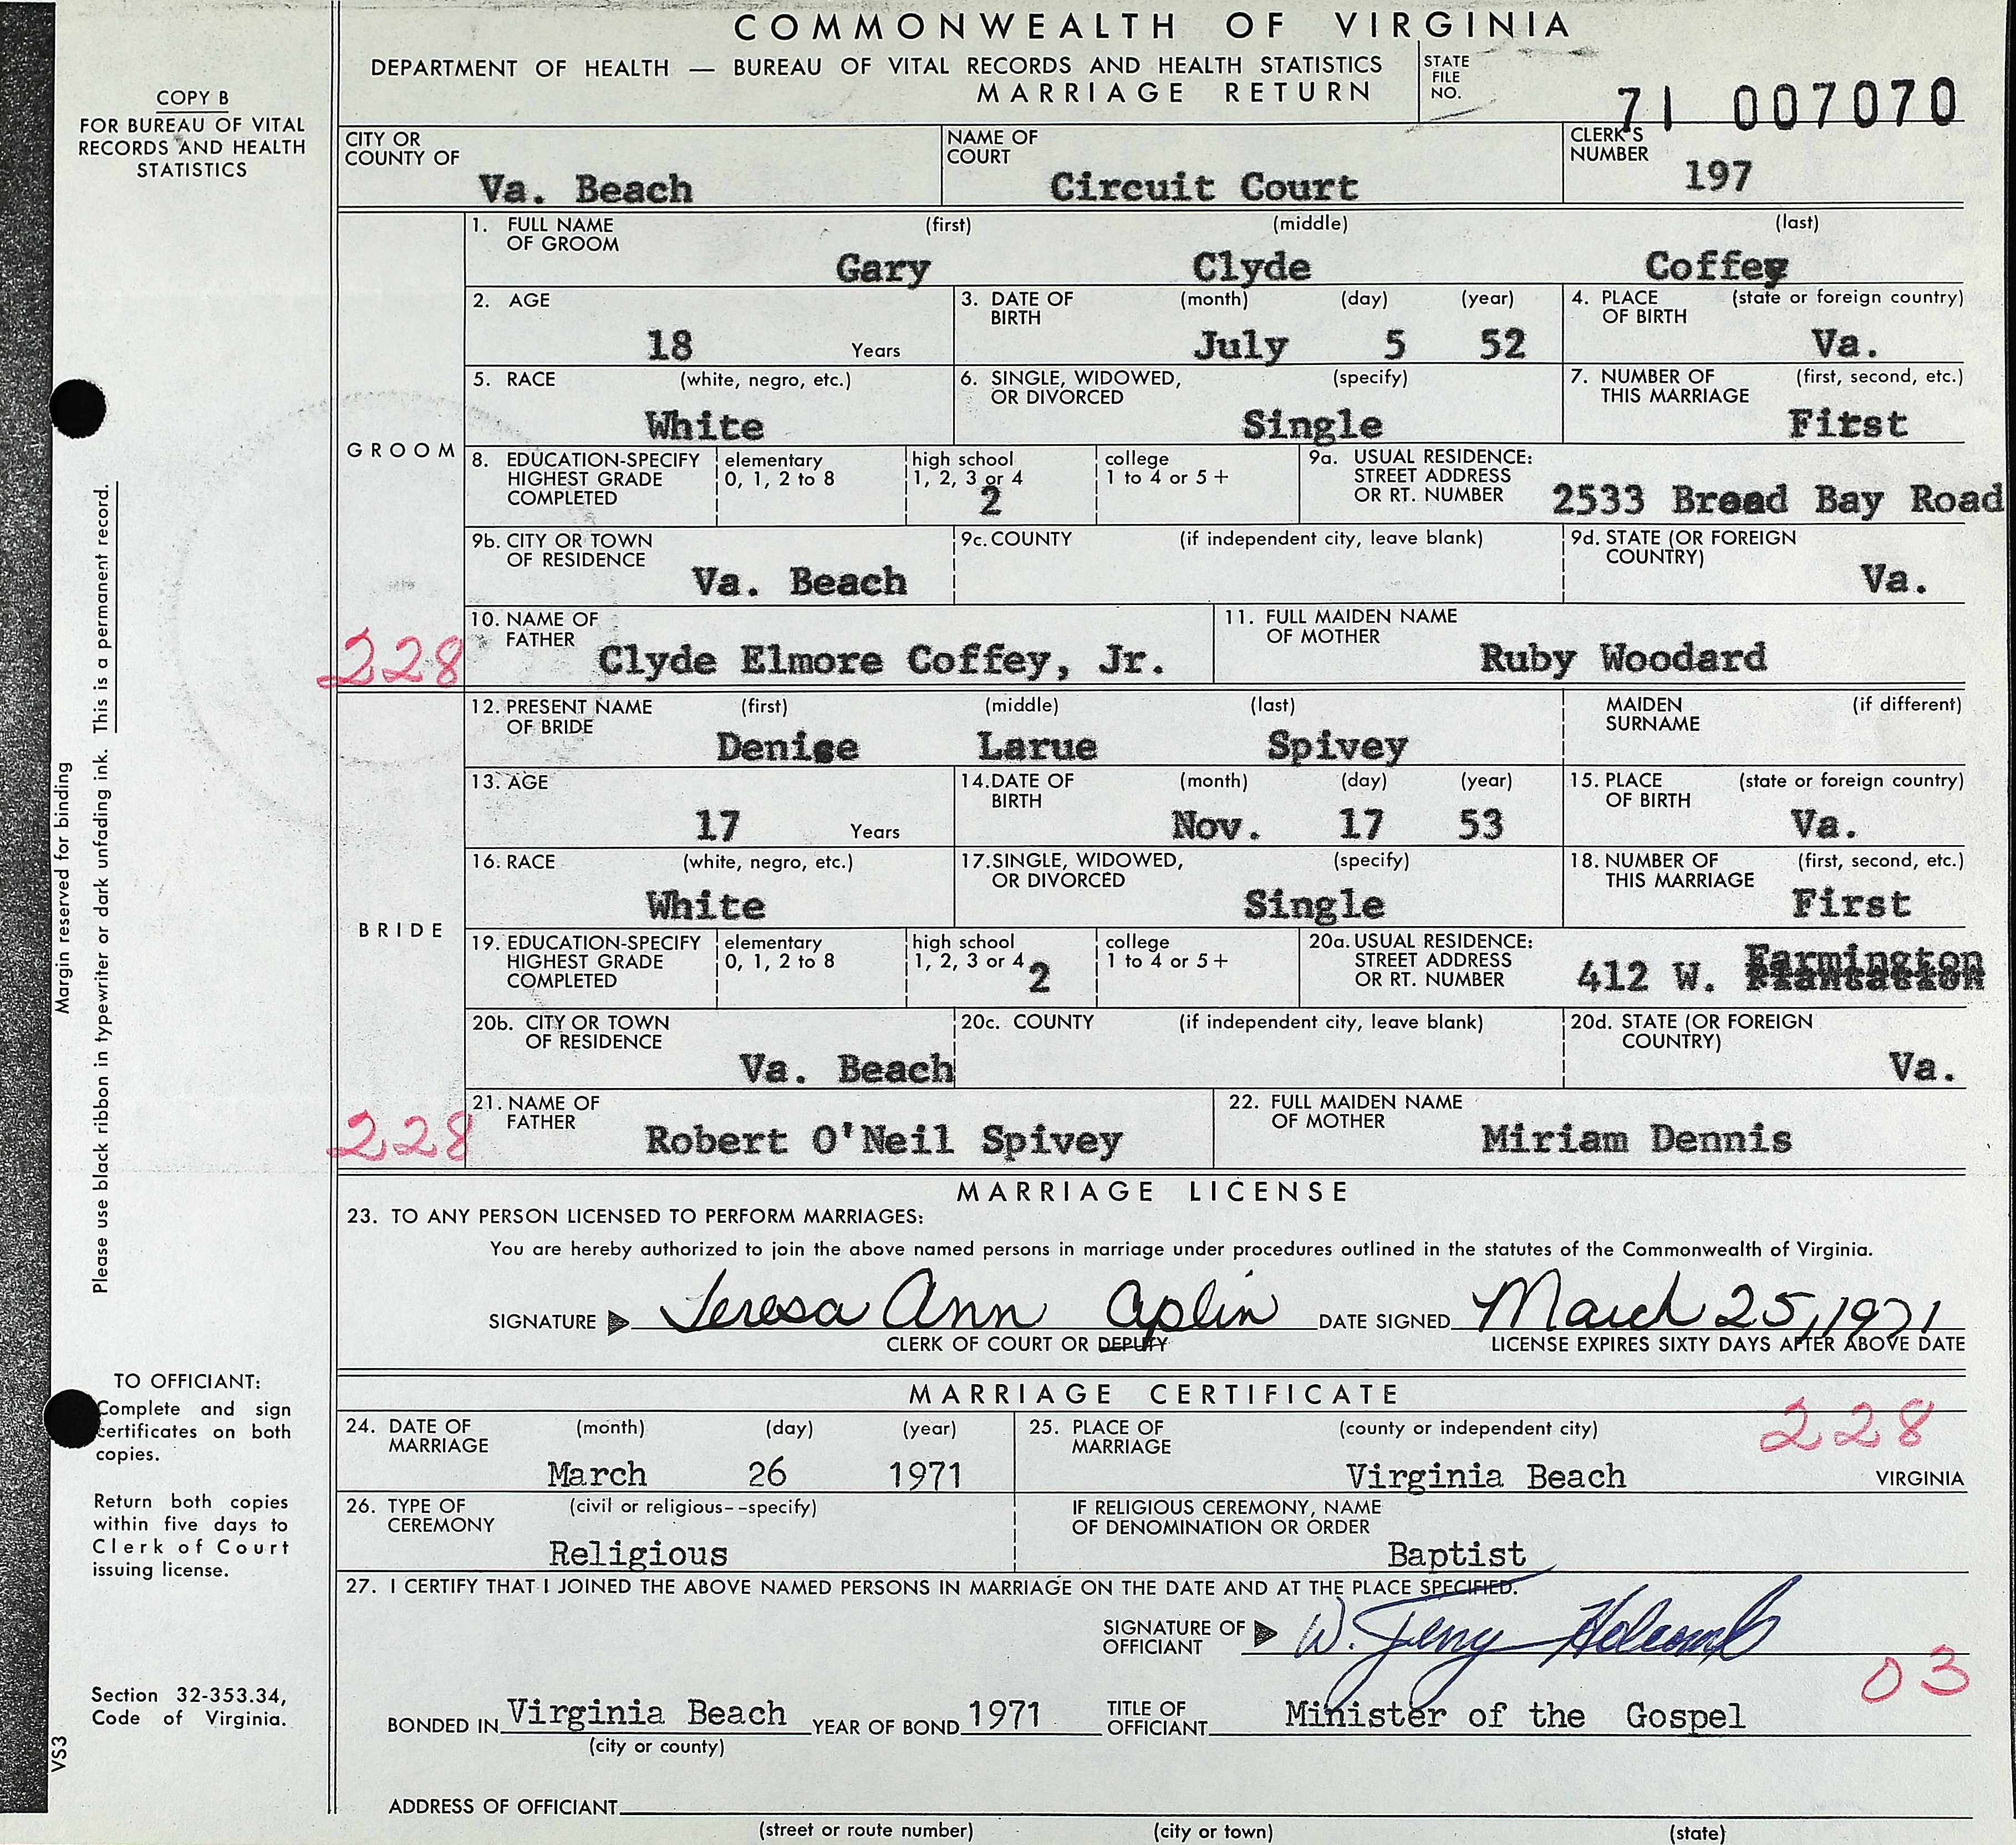 COMMONWEALTH OF VIRGINIA
DEPARTMENT OF HEALTH — BUREAU OF VITAL RECORDS AND HEALTH STATISTICS
MARRIAGE RETURN
STATE FILE NO. 71 007070
COPY B
FOR BUREAU OF VITAL
RECORDS AND HEALTH
STATISTICS
CITY OR COUNTY OF Va. Beach
NAME OF COURT Circuit Court
CLERK'S NUMBER 197
GROOM
1. FULL NAME OF GROOM (first) Gary (middle) Clyde (last) Coffey
2. AGE 18 Years
3. DATE OF BIRTH (month) July (day) 5 (year) 52
4. PLACE OF BIRTH (state or foreign country) Va.
5. RACE (white, negro, etc.) White
6. SINGLE, WIDOWED, OR DIVORCED (specify) Single
7. NUMBER OF THIS MARRIAGE (first, second, etc.) First
8. EDUCATION-SPECIFY HIGHEST GRADE COMPLETED elementary 0, 1, 2 to 8 high school 1, 2, 3 or 4 2 college 1 to 4 or 5+
9a. USUAL RESIDENCE: STREET ADDRESS OR RT. NUMBER 2533 Broad Bay Road
9b. CITY OR TOWN OF RESIDENCE Va. Beach
9c. COUNTY (if independent city, leave blank)
9d. STATE (OR FOREIGN COUNTRY) Va.
10. NAME OF FATHER Clyde Elmore Coffey, Jr.
11. FULL MAIDEN NAME OF MOTHER Ruby Woodard
228
BRIDE
12. PRESENT NAME OF BRIDE (first) Denise (middle) Larue (last) Spivey
MAIDEN SURNAME (if different)
13. AGE 17 Years
14. DATE OF BIRTH (month) Nov. (day) 17 (year) 53
15. PLACE OF BIRTH (state or foreign country) Va.
16. RACE (white, negro, etc.) White
17. SINGLE, WIDOWED, OR DIVORCED (specify) Single
18. NUMBER OF THIS MARRIAGE (first, second, etc.) First
19. EDUCATION-SPECIFY HIGHEST GRADE COMPLETED elementary 0, 1, 2 to 8 high school 1, 2, 3 or 4 2 college 1 to 4 or 5+
20a. USUAL RESIDENCE: STREET ADDRESS OR RT. NUMBER 412 W. Farmington
20b. CITY OR TOWN OF RESIDENCE Va. Beach
20c. COUNTY (if independent city, leave blank)
20d. STATE (OR FOREIGN COUNTRY) Va.
21. NAME OF FATHER Robert O'Neil Spivey
22. FULL MAIDEN NAME OF MOTHER Miriam Dennis
228
MARRIAGE LICENSE
23. TO ANY PERSON LICENSED TO PERFORM MARRIAGES:
You are hereby authorized to join the above named persons in marriage under procedures outlined in the statutes of the Commonwealth of Virginia.
SIGNATURE Teresa Ann Aplin DATE SIGNED March 25, 1971
CLERK OF COURT OR DEPUTY LICENSE EXPIRES SIXTY DAYS AFTER ABOVE DATE
MARRIAGE CERTIFICATE
24. DATE OF MARRIAGE (month) March (day) 26 (year) 1971
25. PLACE OF MARRIAGE (county or independent city) Virginia Beach VIRGINIA
228
26. TYPE OF CEREMONY (civil or religious--specify) Religious
IF RELIGIOUS CEREMONY, NAME OF DENOMINATION OR ORDER Baptist
27. I CERTIFY THAT I JOINED THE ABOVE NAMED PERSONS IN MARRIAGE ON THE DATE AND AT THE PLACE SPECIFIED.
SIGNATURE OF OFFICIANT W. Jerry Holcomb
03
BONDED IN Virginia Beach YEAR OF BOND 1971 TITLE OF OFFICIANT Minister of the Gospel
(city or county)
ADDRESS OF OFFICIANT
(street or route number) (city or town) (state)
Margin reserved for binding
Please use black ribbon in typewriter or dark unfading ink. This is a permanent record.
TO OFFICIANT:
Complete and sign
certificates on both
copies.
Return both copies
within five days to
Clerk of Court
issuing license.
Section 32-353.34,
Code of Virginia.
VS3